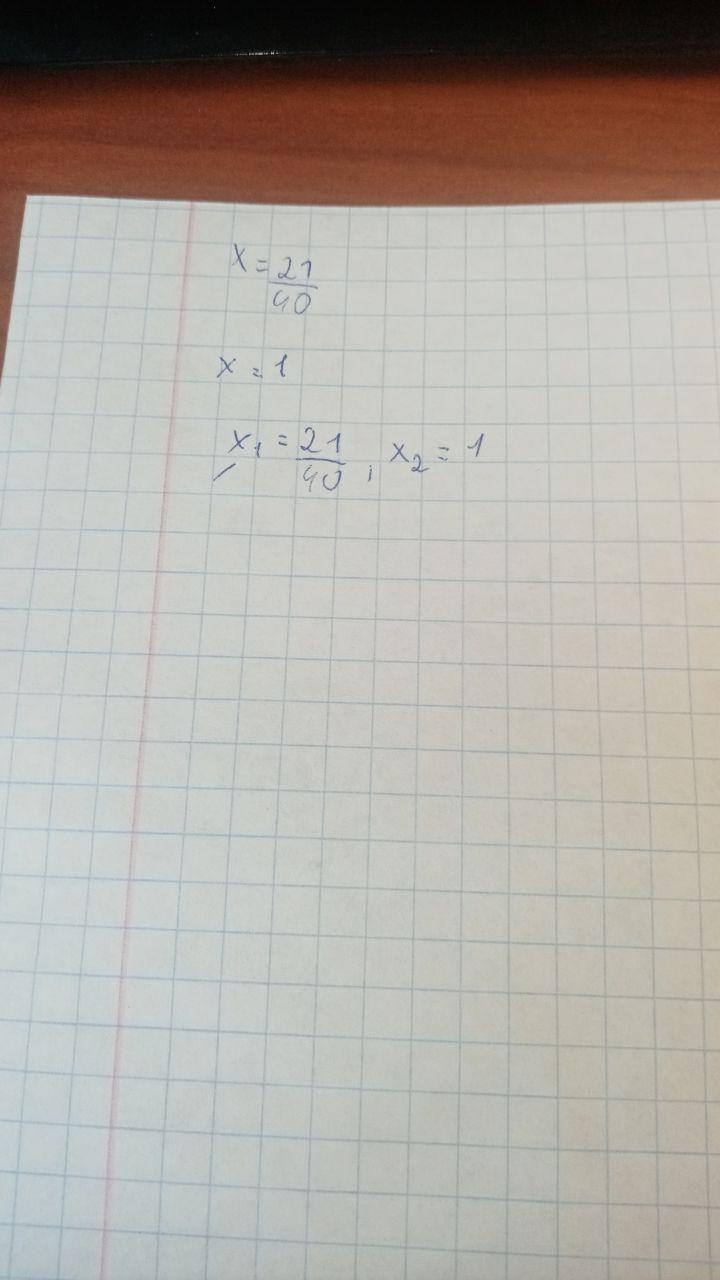 x = 21/40
x = 1
x₁ = 21/40, x₂ = 1